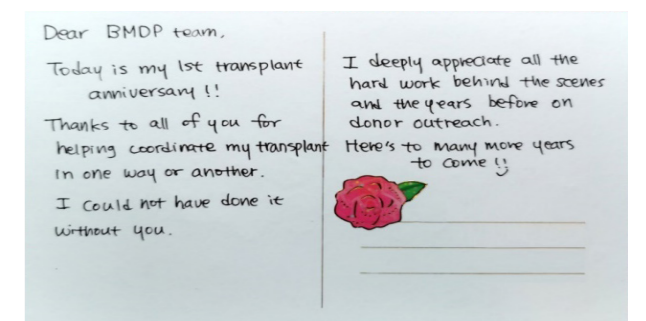 Dear BMDP team,
Today is my 1st transplant
anniversary !!
Thanks to all of you for
helping coordinate my transplant
in one way or another.
I could not have done it
without you.
I deeply appreciate all the
hard work behind the scenes
and the years before on
donor outreach.
Here's to many more years
to come !!